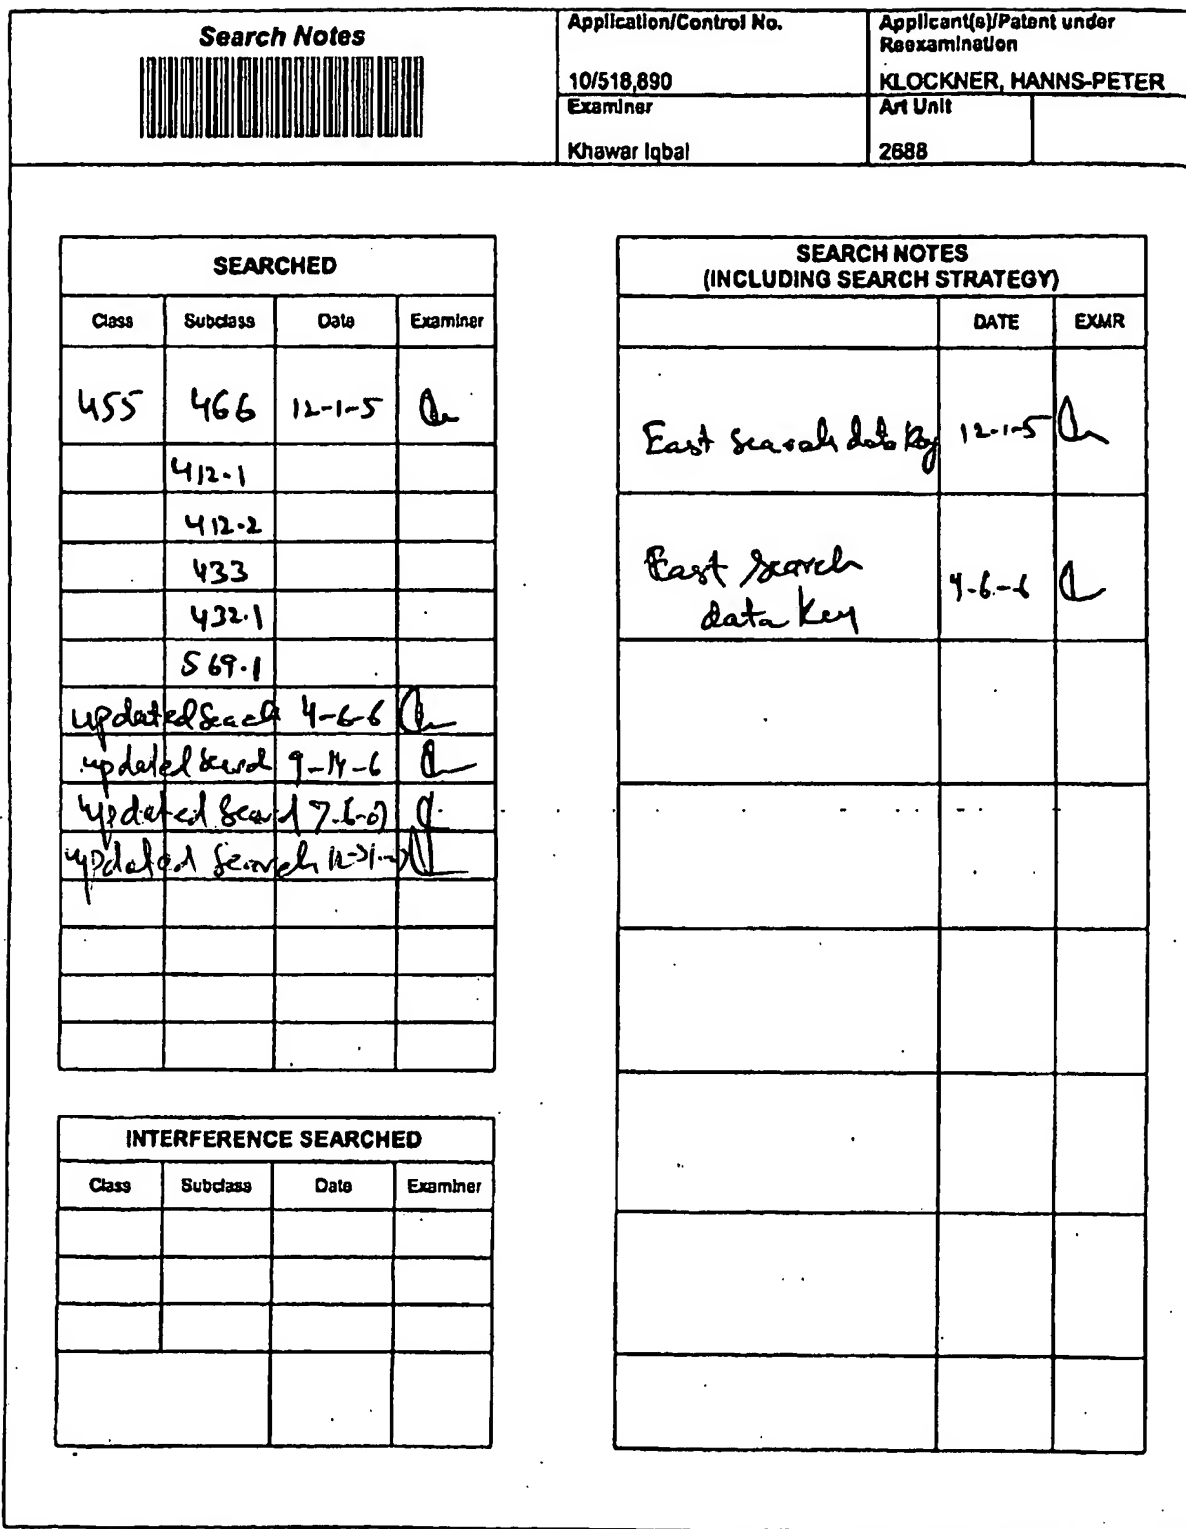 Search Notes
Application/Control No.
10/518,890
Applicant(s)/Patent under
Reexamination
KLOCKNER, HANNS-PETER
Examiner
Khawar Iqbal
Art Unit
2688
SEARCHED
Class Subclass Date Examiner
455 466 12-1-5
412.1
412.2
433
432.1
569.1
updated Seach 4-6-6
updated 9-14-6
updated 7-6-07
updated Search
INTERFERENCE SEARCHED
Class Subclass Date Examiner
SEARCH NOTES
(INCLUDING SEARCH STRATEGY)
DATE EXMR
East Search data Key 12-1-5
East Search
data Key 4-6-6